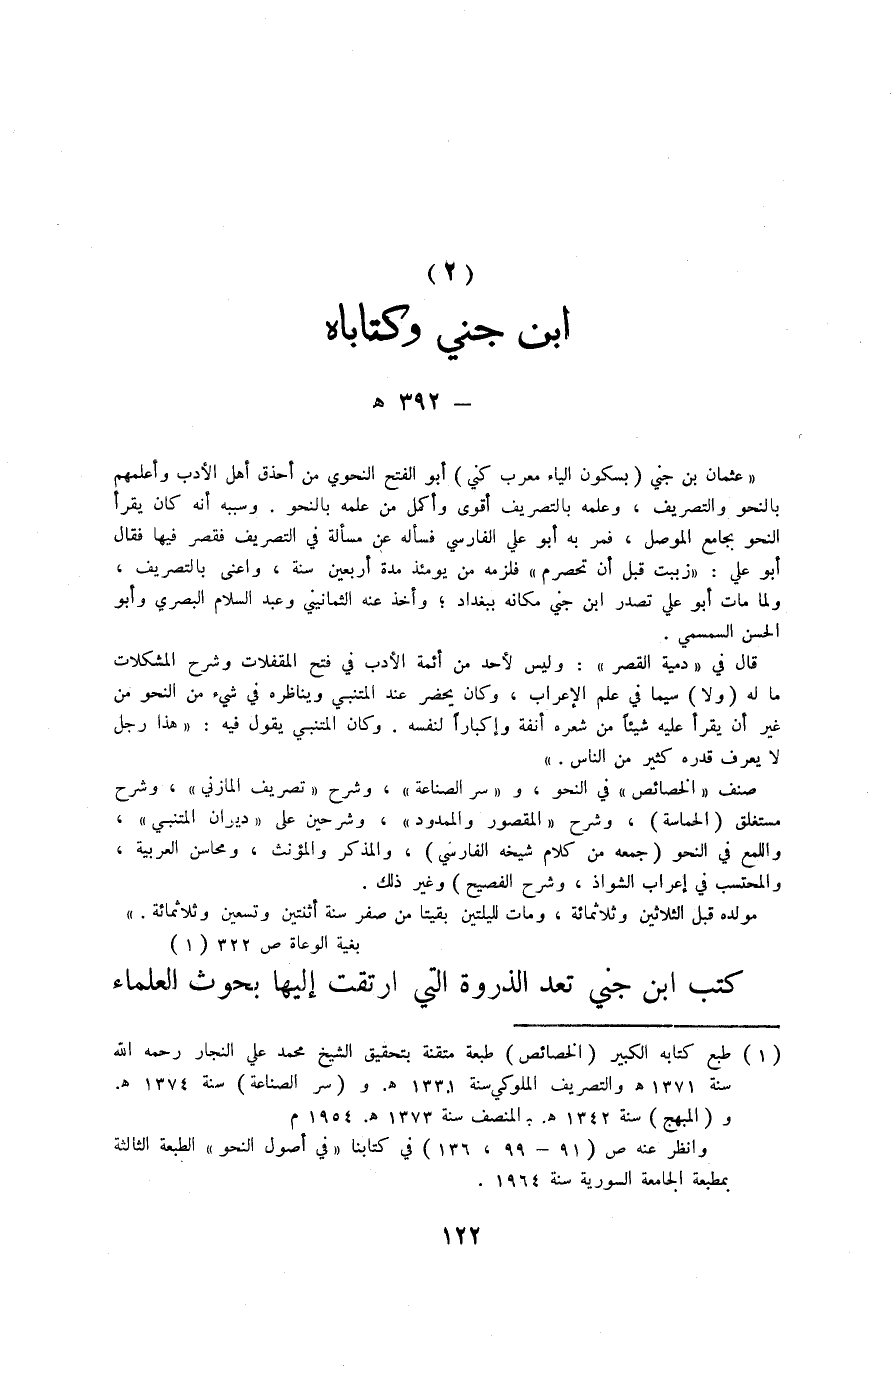 ( ٢ )
ابن جني وكتاباه
– ٣٩٢ ه
« عثمان بن جني ( بسكون الياء معرب كني ) أبو الفتح النحوي من أحذق أهل الأدب وأعلمهم
بالنحو والتصريف ، وعلمه بالتصريف أقوى وأكمل من علمه بالنحو . وسببه أنه كان يقرأ
النحو بجامع الموصل ، فمر به أبو علي الفارسي فسأله عن مسألة في التصريف فقصر فيها فقال
أبو علي : «زببت قبل أن تحصرم» فلزمه من يومئذ مدة أربعين سنة ، واعنى بالتصريف ،
ولما مات أبو علي تصدر ابن جني مكانه ببغداد ؛ وأخذ عنه الثمانيني وعبد السلام البصري وأبو
الحسن السمسمي .
قال في « دمية القصر » : وليس لأحد من أئمة الأدب في فتح المقفلات وشرح المشكلات
ما له ( ولا ) سيما في علم الإعراب ، وكان يحضر عند المتنبي ويناظره في شيء من النحو من
غير أن يقرأ عليه شيئاً من شعره أنفة وإكباراً لنفسه . وكان المتنبي يقول فيه : « هذا رجل
لا يعرف قدره كثير من الناس . »
صنف « الخصائص » في النحو ، و « سر الصناعة » ، وشرح « تصريف المازني » ، وشرح
مستغلق ( الحماسة ) ، وشرح « المقصور والممدود » ، وشرحين على « ديران المتنبي » ،
واللمع في النحو ( جمعه من كلام شيخه الفارسي ) ، والمذكر والمؤنث ، ومحاسن العربية ،
والمحتسب في إعراب الشواذ ، وشرح الفصيح ) وغير ذلك .
مولده قبل الثلاثين وثلاثمائة ، ومات لليلتين بقيتا من صفر سنة أثنتين وتسعين وثلاثمائة . »
بغية الوعاة ص ٣٢٢ ( ١ )
كتب ابن جني تعد الذروة التي ارتقت إليها بحوث العلماء
( ١ ) طبع كتابه الكبير ( الخصائص ) طبعة متقنة بتحقيق الشيخ محمد علي النجار رحمه الله
سنة ١٣٧١ ه والتصريف الملوكي سنة ١٣٣١ ه. و ( سر الصناعة ) سنة ١٣٧٤ ه.
و ( المبهج ) سنة ١٣٤٢ ه. المنصف سنة ١٣٧٣ ه. ١٩٥٤ م
وانظر عنه ص ( ٩١ – ٩٩ ، ١٣٦ ) في كتابنا « في أصول النحو » الطبعة الثالثة
بمطبعة الجامعة السورية سنة ١٩٦٤ .
١٢٢